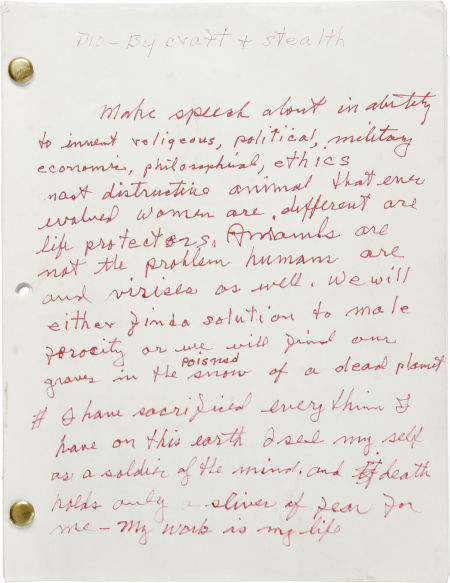 DIO - By craft + stealth
Make speech about inability
to invent religeous, political, military
economic, philosophical, ethics
most distructive animal that ever
evolved women are different are
life protectors. Animals are
not the problem humans are
and virises as well. We will
either find a solution to male
ferocity or we will find our
graves in the poisned snow of a dead planet
# I have sacrificed everything I
have on this earth I see my self
as a soldier of the mind. and If death
holds only a sliver of fear for
me - My work is my life